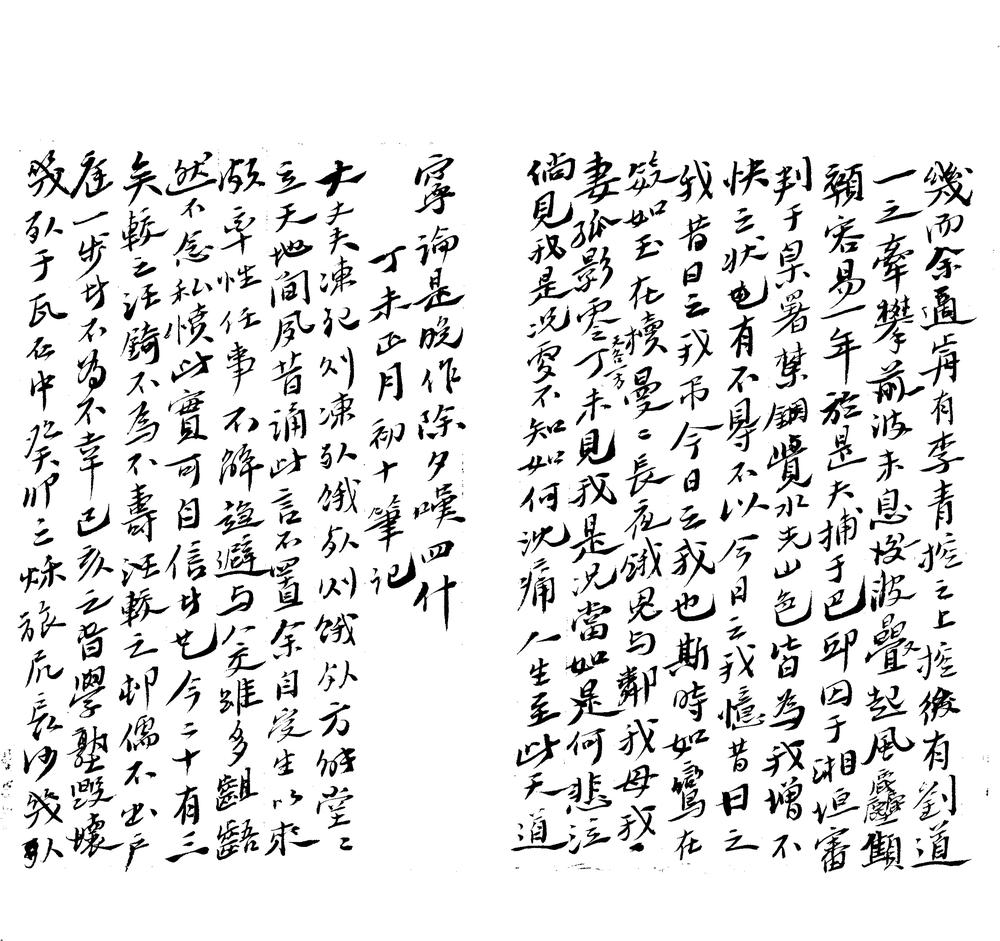 幾而余適每有李青控之上控後有劉道
一之牽攀前波未息後波疊起風靡顛
顛容易一年於是大捕于邑邱囚于湘垣審
判于臬署禁錮覺水光山色皆為我增不
快之狀也有不得不以今日之我憶昔日之
我昔日之我吊今日之我也斯時如鸞在
笯如玉在櫝曼々長夜餓鬼與鄰我母我々
妻孤影零丁未見我是況當如是何悲泣
倘見我是況更不知如何沈痛人生至此天道
寧論是晚作除夕嘆四什
丁未正月初十筆記
大丈夫凍死則凍死餓死則餓死方能堂々
立天地間夙昔誦此言不置余自受生以來
故率性任事不解趨避与人交雖多齟齬
然不念私憤此實可自信者也今二十有三
矣較之汪錡不為不壽汪較之邨儒不出戶
庭一步者不為不幸己亥之昔學塾毀壞
幾死于瓦石中癸卯之秋旅居長沙幾死